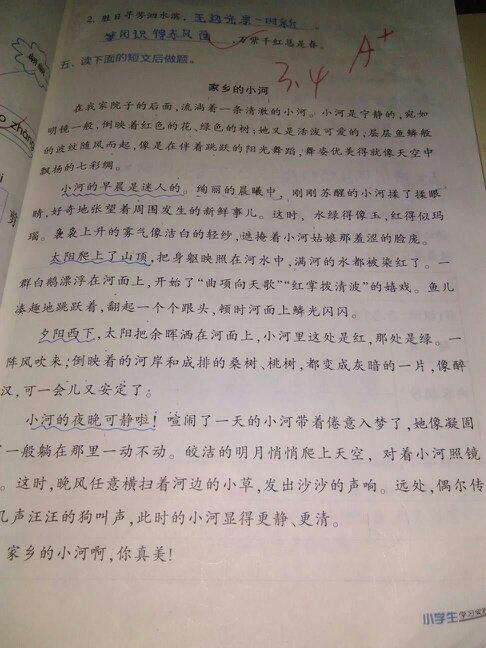 2. 胜日寻芳泗水滨,无边光景一时新。
等闲识得东风面,万紫千红总是春。
A+
3.4
五、读下面的短文后做题。
家乡的小河
在我家院子的后面,流淌着一条清澈的小河。小河是宁静的,宛如
明镜一般,倒映着红色的花、绿色的树;她又是活泼可爱的;层层鱼鳞般
的波纹随风而起,像是在伴着跳跃的阳光舞蹈,舞姿优美得就像天空中
飘扬的七彩绸。
小河的早晨是迷人的。绚丽的晨曦中,刚刚苏醒的小河揉了揉眼
睛,好奇地张望着周围发生的新鲜事儿。这时,水绿得像玉,红得似玛
瑙。袅袅上升的雾气像洁白的轻纱,遮掩着小河姑娘那羞涩的脸庞。
太阳爬上了山顶,把身躯映照在河水中,满河的水都被染红了。一
群白鹅漂浮在河面上,开始了“曲项向天歌”“红掌拨清波”的嬉戏。鱼儿
凑趣地跳跃着,翻起一个个跟头,顿时河面上鳞光闪闪。
夕阳西下,太阳把余晖洒在河面上,小河里这处是红,那处是绿。一
阵风吹来;倒映着的河岸和成排的桑树、桃树,都变成灰暗的一片,像醉
汉,可一会儿又安定了。
小河的夜晚可静啦!喧闹了一天的小河带着倦意入梦了,她像凝固
一般躺在那里一动不动。皎洁的明月悄悄爬上天空,对着小河照镜
。这时,晚风任意横扫着河边的小草,发出沙沙的声响。远处,偶尔传
几声汪汪的狗叫声,此时的小河显得更静、更清。
家乡的小河啊,你真美!
小学生学习实